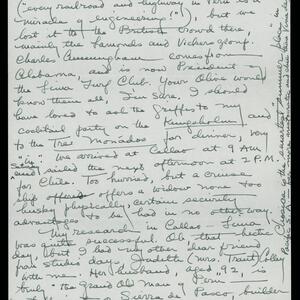 ("every railroad and highway in Peru is a
miracle of engineering"), but we
lost it to the British crowd there,
mainly the Lamonds and Vickers group.
Charles Cunningham comes from
Alabama, and is now President of
the Lima Turf Club. Your Olive would
know them all, I'm sure. I should
have loved to ask the Griffes to my
cocktail party on the Kungsholm and
to the Tres Monadas for dinner, very
We arrived at Callao at 9 AM
and sailed the next afternoon at 2 P.M.
for Chile. Too hurried, but a cruise
ship offers a widow none too
husky physically, certain security
advantages to be had in no other way.
My research in Callao - Lima
was quite successful, Oh that
day, but had my other dear friend
from studio days
with me. Her husband, aged 92, is
"the Grand Old Man of Peru"
Cerro de Pasco builder